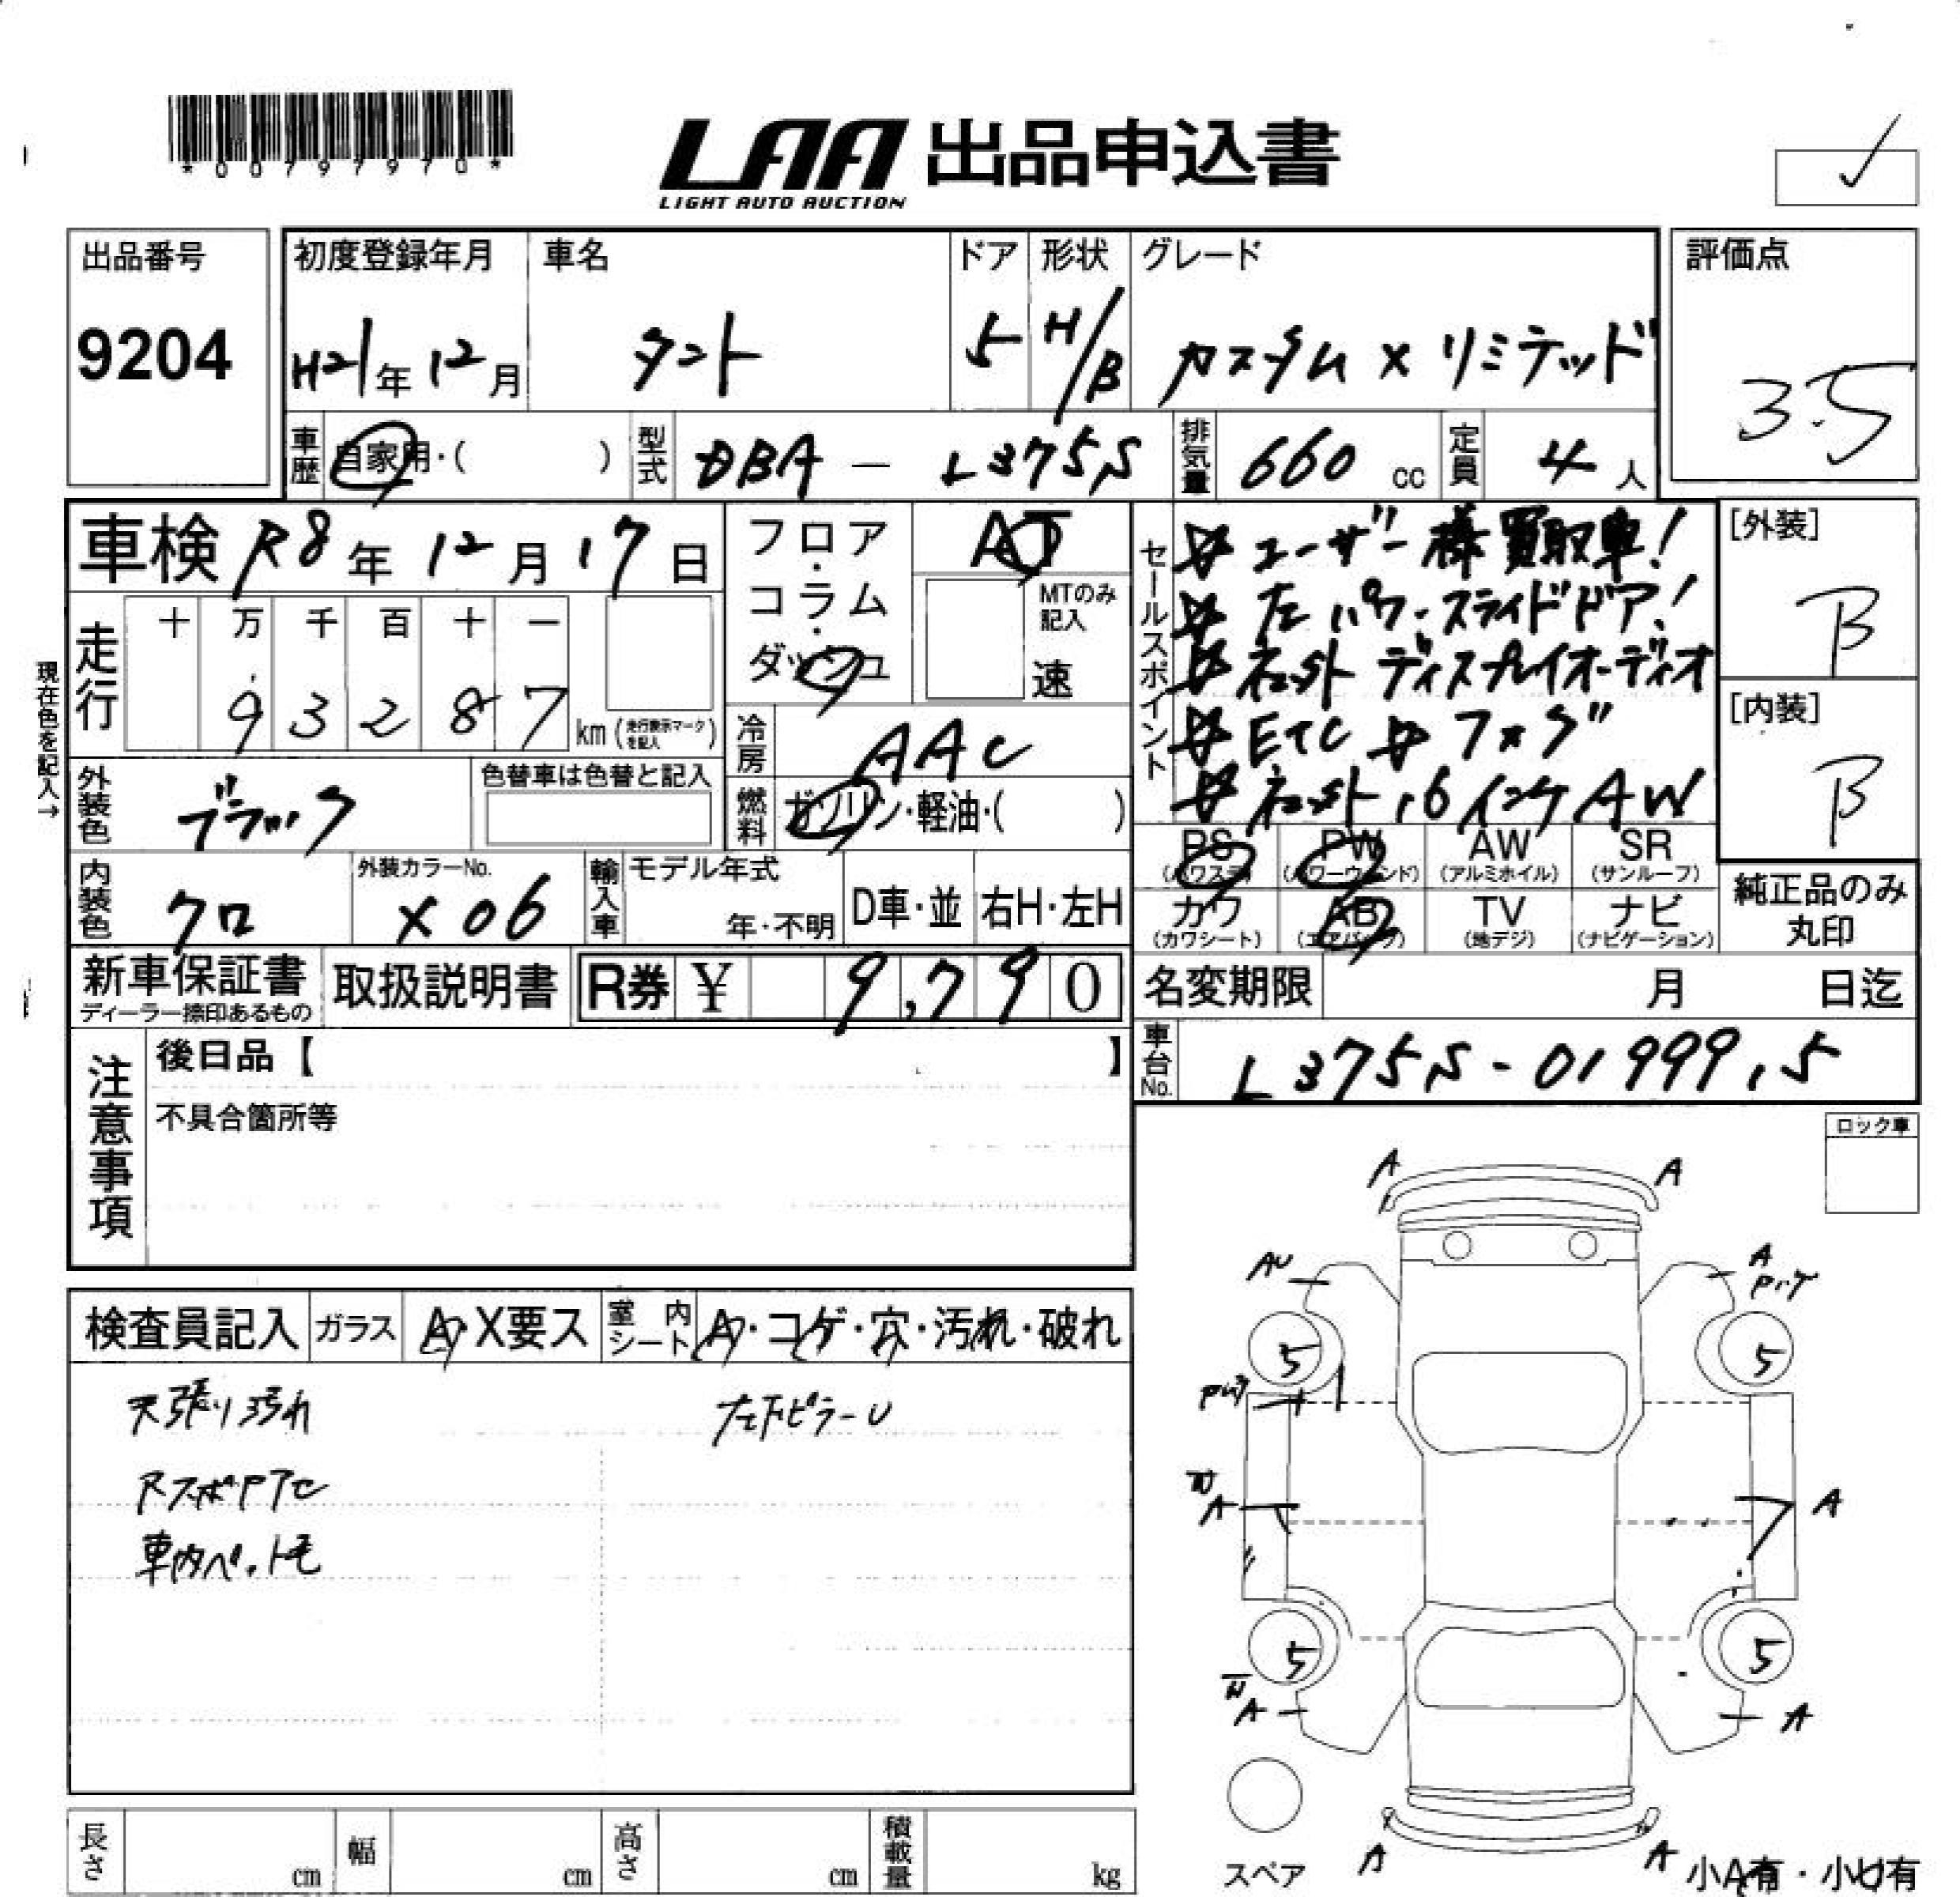 *0079797 0*
LAA 出品申込書
LIGHT AUTO AUCTION
出品番号
9204
初度登録年月
H21年12月
車名
タント
ドア
5
形状
H/B
グレード
カスタム X リミテッド
評価点
3.5
車歴
自家用・( )
型式
DBA - L375S
排気量
660 cc
定員
4 人
車検 R8年12月17日
フロア・コラム・ダッシュ
AT
MTのみ記入
速
セールスポイント
ユーザー様買取車!
左パワースライドドア!
ネット ディスプレイオーディオ
ETC フォグ
ネット 16インチAW
[外装]
B
[内装]
B
現在色を記入→
走行
十 万 千 百 十 一
9 3 2 8 7
km(走行表示マークを記入)
冷房
AAC
外装色
ブラック
色替車は色替と記入
燃料
ガソリン・軽油・( )
PS (パワステ)
PW (パワーウィンド)
AW (アルミホイル)
SR (サンルーフ)
カワ (カワシート)
AB (エアバック)
TV (地デジ)
ナビ (ナビゲーション)
純正品のみ丸印
内装色
クロ
外装カラーNo.
X06
輸入車
モデル年式
年・不明
D車・並
右H・左H
新車保証書
ディーラー捺印あるもの
取扱説明書
R券 ¥ 9,790
名変期限 月 日迄
車台No.
L375S-0199915
注意事項
後日品【 】
不具合箇所等
ロック車
A A
AU A
5 5
A A
5 5
A A
A A
スペア
小A有・小U有
検査員記入
ガラス
A・X要ス
室内シート
A・コゲ・穴・汚れ・破れ
天張り汚れ
左下ピラーU
車内ペット毛
長さ cm
幅 cm
高さ cm
積載量 kg